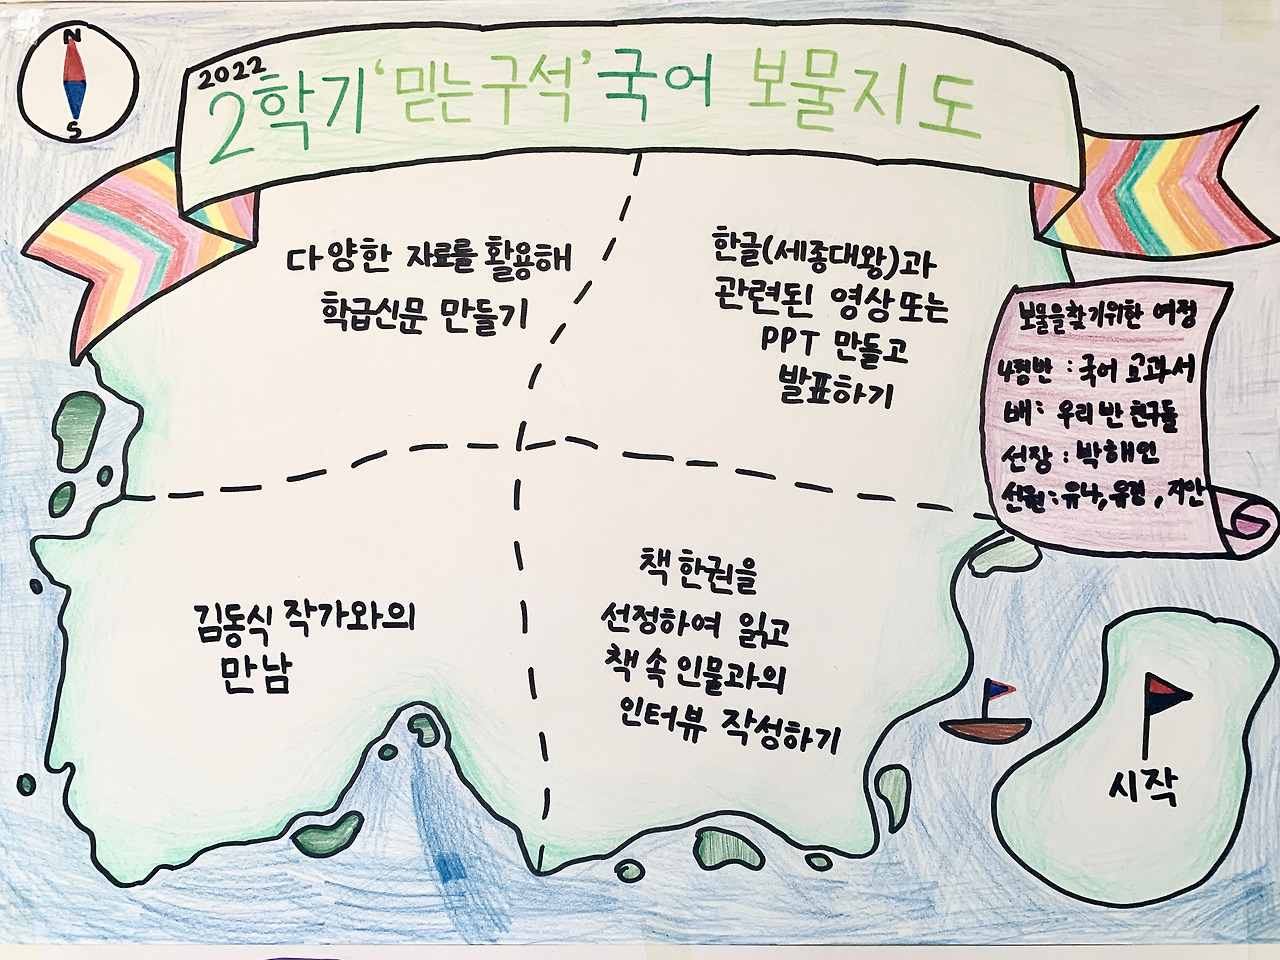 N
S
2022
2학기 '믿는구석' 국어 보물지도
다양한 자료를 활용해
학급신문 만들기
한글(세종대왕)과
관련된 영상 또는
PPT 만들고
발표하기
보물을 찾기위한 여정
나침반 : 국어 교과서
배 : 우리 반 친구들
선장 : 박해인
선원 : 유나, 유정, 지안
김동식 작가와의
만남
책 한권을
선정하여 읽고
책 속 인물과의
인터뷰 작성하기
시작